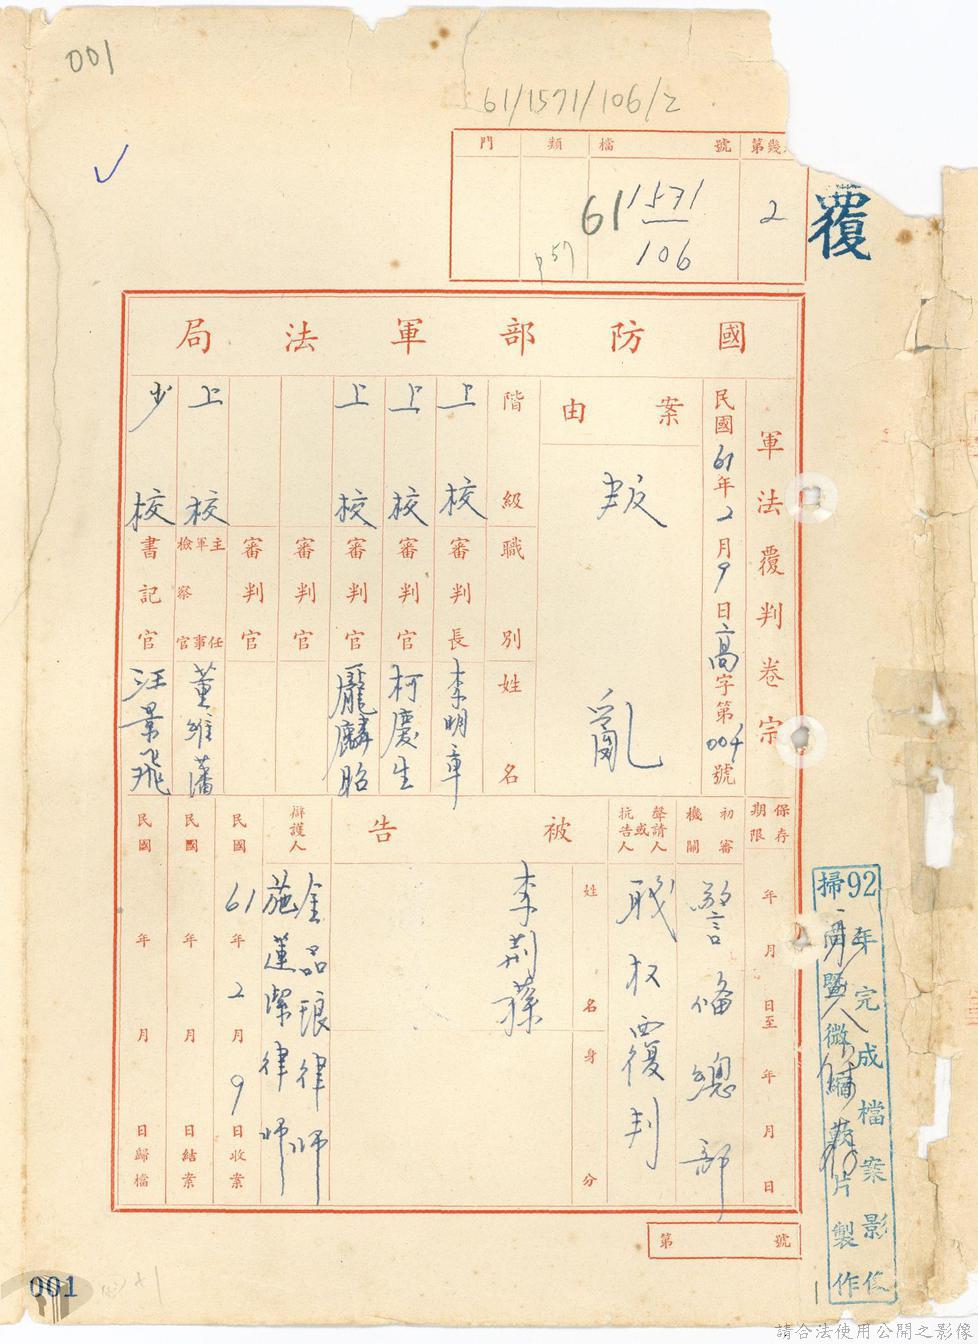 001
61/1571/106/2
門 類 檔號 第幾
p57
61 1571
106
2
覆
國防部軍法局
軍法覆判卷宗
民國61年2月9日高字第004號
案由
叛亂
階級 職別 姓名
上校 審判長 李明章
上校 審判官 柯慶生
上校 審判官 龐麟昭
審判官
審判官
上校 主任軍事檢察官 董維藩
少校 書記官 汪景飛
保存期限 年月日至年月日
初審機關 警備總部
聲請人或抗告人 職权覆判
被告
姓名 身分
李荊蓀
辯護人 金品琅律师
施蓮潔律师
民國61年2月9日收案
民國年月日結案
民國年月日歸檔
第號
92年完成檔案影像
掃瞄暨微縮片製作
001
請合法使用公開之影像